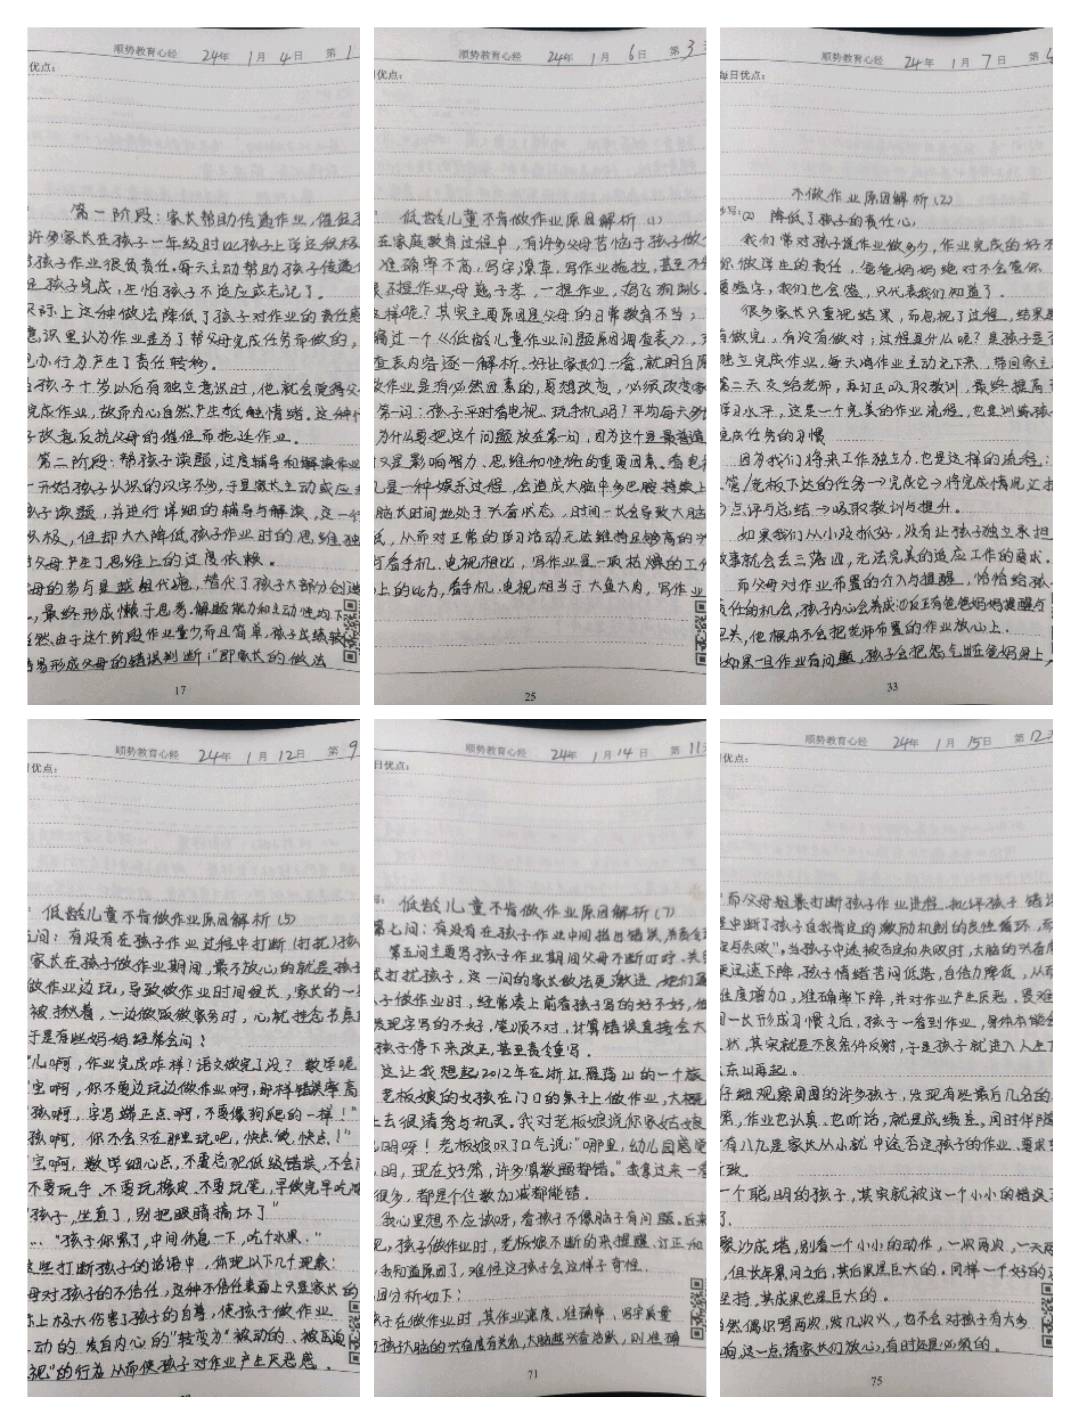 顺势教育心经 24年 1月 4日 第1
优点:
第一阶段:家长帮助传递作业,催促
许多家长在孩子一年级时以孩子上学还积极
孩子作业很负责任.每天主动帮助孩子传递
孩子完成,生怕孩子不适应或忘记了.
实际上这种做法降低了孩子对作业的责任感
意识里认为作业是为了帮父母完成任务而做的,
办行为产生了责任转移.
孩子十岁以后有独立意识时,他就会觉得父
完成作业,故而内心自然产生抵触情绪,这种
子故意反抗父母的催促而拖延作业.
第二阶段:帮孩子读题,过度辅导和解读作业
一开始孩子认识的汉字不多,于是家长主动或应
孩子读题,并进行详细的辅导与解读,这一
极,但却大大降低孩子作业时的思维独
父母产生了思维上的过度依赖.
母的参与是越俎代庖,替代了孩子大部分创造
,最终形成懒于思考.解题能力和主动性均下
然,由于这个阶段作业量少而且简单,孩子成绩
易形成父母的错误判断:"即家长的做法
17
顺势教育心经 24年 1月 6日 第3
优点:
低龄儿童不肯做作业原因解析(1)
在家庭教育过程中,有许多父母苦恼于孩子做
准确率不高,写字潦草,写作业拖拉,甚至不
不提作业,母慈子孝,一提作业,鸡飞狗跳.
样呢?其实主要原因是父母的日常教育不当;
通过一个《低龄儿童作业问题原因调查表》,
查表内容逐一解析.好让家长们一看,就明白原
作业是有必然因素的,要想改变,必须改变家
第一问:孩子平时看电视、玩手机吗?平均每天多
为什么要把这个问题放在第一问,因为这个是最普遍
又是影响智力、思维和性格的重要因素.看电
是一种娱乐过程,会造成大脑中多巴胺持续上
脑长时间地处于兴奋状态,时间一长会导致大脑
,从而对正常的学习活动无法维持足够高的兴
看手机.电视相比,写作业是一项枯燥的工作
上的比方,看手机.电视相当于大鱼大肉,写作业
25
顺势教育心经 24年 1月 7日 第4
每日优点:
不做作业原因解析(2)
(2) 降低了孩子的责任心
我们常对孩子说作业做多少,作业完成的好不
你做学生的责任,爸爸妈妈绝对不会管你
要签字,我们也会签,只代表我们知道了.
很多家长只重视结果,而忽视了过程,结果是
有做完、有没有做对;过程是什么呢?是孩子是
独立完成作业,每天将作业主动记下来,带回家主
第二天交给老师,再订正吸取教训,最终提高
学习水平,这是一个完美的作业流程,也是训练孩
完成任务的习惯
因为我们将来工作独立力.也是这样的流程:
管/老板下达的任务→完成它→将完成情况汇报
点评与总结→吸取教训与提升.
如果我们从小没抓好,没有让孩子独立承担
故事就会丢三落四,无法完美的适应工作的要求.
而父母对作业布置的介入与提醒,恰恰给孩
责任的机会,孩子内心会养成:反正有爸爸妈妈提醒与
关,他根本不会把老师布置的作业放心上.
如果一旦作业有问题,孩子会把怨气出在爸妈身上,
33
顺势教育心经 24年 1月 12日 第9
优点:
低龄儿童不肯做作业原因解析(5)
问:有没有在孩子作业过程中打断(打扰)孩
家长在孩子做作业期间,最不放心的就是孩子
做作业边玩,导致做作业时间很长,家长的一
被揪着,一边做饭做家务时,心就挂念书桌
于是有些妈妈经常会问:
"儿啊,作业完成咋样?语文做完了没?数学呢
宝啊,你不要边玩边做作业啊,那样错误率高
孩啊,字写端正点啊,不要像狗爬的一样!"
孩啊,你不会又在那里玩吧,快点做,快点!"
宝啊,数学细心点,不要总犯低级错误,不会
不要玩手、不要玩橡皮、不要玩笔,早做完早吃
"孩子,坐直了,别把眼睛搞坏了"
… "孩子你累了,中间休息一下,吃个水果."
这些打断孩子的话语中,体现以下几个现象:
母对孩子的不信任,这种不信任表面上只是家长的
上极大伤害了孩子的自尊,使孩子做作业
动的、发自内心的"转变为"被动的、被压迫
视"的行为从而使孩子对作业产生厌恶感.
顺势教育心经 24年 1月 14日 第11天
日优点:
低龄儿童不肯做作业原因解析(7)
第七问:有没有在孩子作业中间指出错误,
第五问主要写孩子作业期间父母不断叮咛、关
打扰孩子,这一问的家长做法更激进,她们
子做作业时,经常凑上前看孩子写的好不好,
发现字写的不好,笔顺不对,计算错误直接会大
孩子停下来改正,甚至责令重写.
这让我想起2012年在浙江雁荡山的一个旅
老板娘的女孩在门口的桌子上做作业,大概
上去很清秀与机灵.我对老板娘说你家姑娘
明呀!老板娘叹了口气说:"哪里,幼儿园感觉
明,现在好笨,许多算数题都错."我拿过来一看
很多,都是个位数加减都能错.
我心里想不应该呀,看孩子不像脑子有问题.后来
见,孩子做作业时,老板娘不断的来提醒、订正和
,我知道原因了,难怪这孩子会这样子奇怪.
因分析如下:
孩子在做作业时,其作业速度、准确率、写字质量
孩子大脑的兴奋度有关系,大脑越兴奋活跃,则准确
71
顺势教育心经 24年 1月 15日 第12天
优点:
而父母粗暴打断孩子作业进程.批评孩子错误
是中断了孩子自我肯定的激励机制的良性循环,而
与失败",当孩子中途被否定和失败时,大脑的兴奋度
迅速下降,孩子情绪苦闷低落,自信力降低,从而
度增加,准确率下降,并对作业产生厌恶、畏难
一长形成习惯之后,孩子一看到作业,身体本能会
状,其实就是不良条件反射,于是孩子就进入人生
东山再起.
仔细观察周围的许多孩子,发现有些最后几名的
,作业也认真.也听话,就是成绩差.同时伴随
有八九是家长从小就中途否定孩子的作业、要求
致.
一个聪明的孩子,其实就被这一个小小的错误
了.
聚沙成塔,别看一个小小的动作,一次两次,一天两
,但长年累月之后,其后果是巨大的.同样一个好的
坚持,其成果也是巨大的.
当然偶尔骂两次,发几次火,也不会对孩子有大多
响,这一点,请家长们放心,有时还是必须的.
75